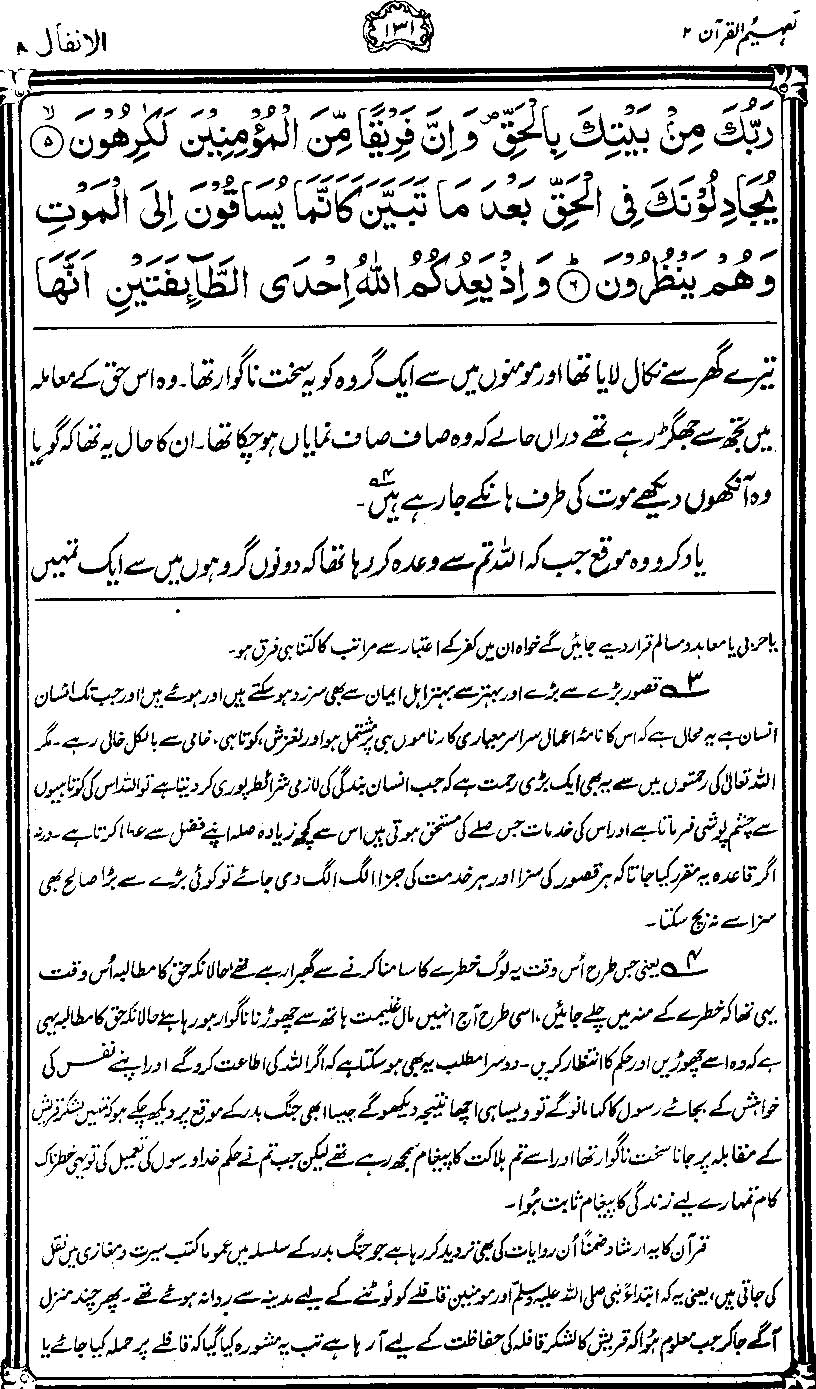 تفہیم القرآن ۲
۱۳۱
الانفال ۸
رَبُّكَ مِنْۢ بَيْتِكَ بِالْحَقِّ ۪ وَاِنَّ فَرِيْقًا مِّنَ الْمُؤْمِنِيْنَ لَكٰرِهُوْنَ ۙ﴿۵﴾
يُجَادِلُوْنَكَ فِى الْحَقِّ بَعْدَ مَا تَبَيَّنَ كَاَنَّمَا يُسَاقُوْنَ اِلَى الْمَوْتِ
وَهُمْ يَنْظُرُوْنَ ؕ﴿۶﴾ وَاِذْ يَعِدُكُمُ اللّٰهُ اِحْدَى الطَّآئِفَتَيْنِ اَنَّهَا
تیرے گھر سے نکال لایا تھا اور مومنوں میں سے ایک گروہ کو یہ سخت ناگوار تھا۔ وہ اس حق کے معاملہ
میں تجھ سے جھگڑ رہے تھے دراں حالے کہ وہ صاف صاف نمایاں ہو چکا تھا۔ ان کا حال یہ تھا کہ گویا
وہ آنکھوں دیکھے موت کی طرف ہانکے جا رہے ہیں۴۔
یاد کرو وہ موقع جب کہ اللہ تم سے وعدہ کر رہا تھا کہ دونوں گروہوں میں سے ایک تمہیں
یا حربی یا معاہد و مسالم قرار دیے جائیں گے خواہ ان میں کفر کے اعتبار سے مراتب کا کتنا ہی فرق ہو۔
۳ قصور بڑے سے بڑے اور بہتر سے بہتر اہل ایمان سے بھی سرزد ہو سکتے ہیں اور ہوئے ہیں، اور جب تک انسان
انسان ہے یہ محال ہے کہ اس کا نامۂ اعمال سراسر معیاری کارناموں ہی پر مشتمل ہو اور لغزش، کوتاہی، خامی سے بالکل خالی رہے۔ مگر
اللہ تعالیٰ کی رحمتوں میں سے یہ بھی ایک بڑی رحمت ہے کہ جب انسان بندگی کی لازمی شرائط پوری کر دیتا ہے تو اللہ اس کی کوتاہیوں
سے چشم پوشی فرماتا ہے اور اس کی خدمات جس صلے کی مستحق ہوتی ہیں اس سے کچھ زیادہ صلہ اپنے فضل سے عطا کرتا ہے۔ ورنہ
اگر قاعدہ یہ مقرر کیا جاتا کہ ہر قصور کی سزا اور ہر خدمت کی جزا الگ الگ دی جائے تو کوئی بڑے سے بڑا صالح بھی
سزا سے نہ بچ سکتا۔
۴ یعنی جس طرح اُس وقت یہ لوگ خطرے کا سامنا کرنے سے گھبرا رہے تھے حالانکہ حق کا مطالبہ اُس وقت
یہی تھا کہ خطرے کے منہ میں چلے جائیں، اسی طرح آج انہیں مال غنیمت ہاتھ سے چھوڑنا ناگوار ہو رہا ہے حالانکہ حق کا مطالبہ یہی
ہے کہ وہ اسے چھوڑیں اور حکم کا انتظار کریں۔ دوسرا مطلب یہ بھی ہو سکتا ہے کہ اگر اللہ کی اطاعت کرو گے اور اپنے نفس کی
خواہش کے بجائے رسول کا کہا مانو گے تو ویسا ہی اچھا نتیجہ دیکھو گے جیسا ابھی جنگ بدر کے موقع پر دیکھ چکے ہو کہ تمہیں لشکر قریش
کے مقابلہ پر جانا سخت ناگوار تھا اور اسے تم ہلاکت کا پیغام سمجھ رہے تھے لیکن جب تم نے حکم خدا و رسول کی تعمیل کی تو یہی خطرناک
کام تمہارے لیے زندگی کا پیغام ثابت ہُوا۔
قرآن کا یہ ارشاد ضمناً اُن روایات کی بھی تردید کر رہا ہے جو جنگ بدر کے سلسلہ میں عموماً کتب سیرت و مغازی میں نقل
کی جاتی ہیں، یعنی یہ کہ ابتداءً نبی صلی اللہ علیہ وسلم اور مومنین قافلے کو لوٹنے کے لیے مدینہ سے روانہ ہوئے تھے۔ پھر چند منزل
آگے جا کر جب معلوم ہُوا کہ قریش کا لشکر قافلہ کی حفاظت کے لیے آ رہا ہے تب یہ مشورہ کیا گیا کہ قافلے پر حملہ کیا جائے یا